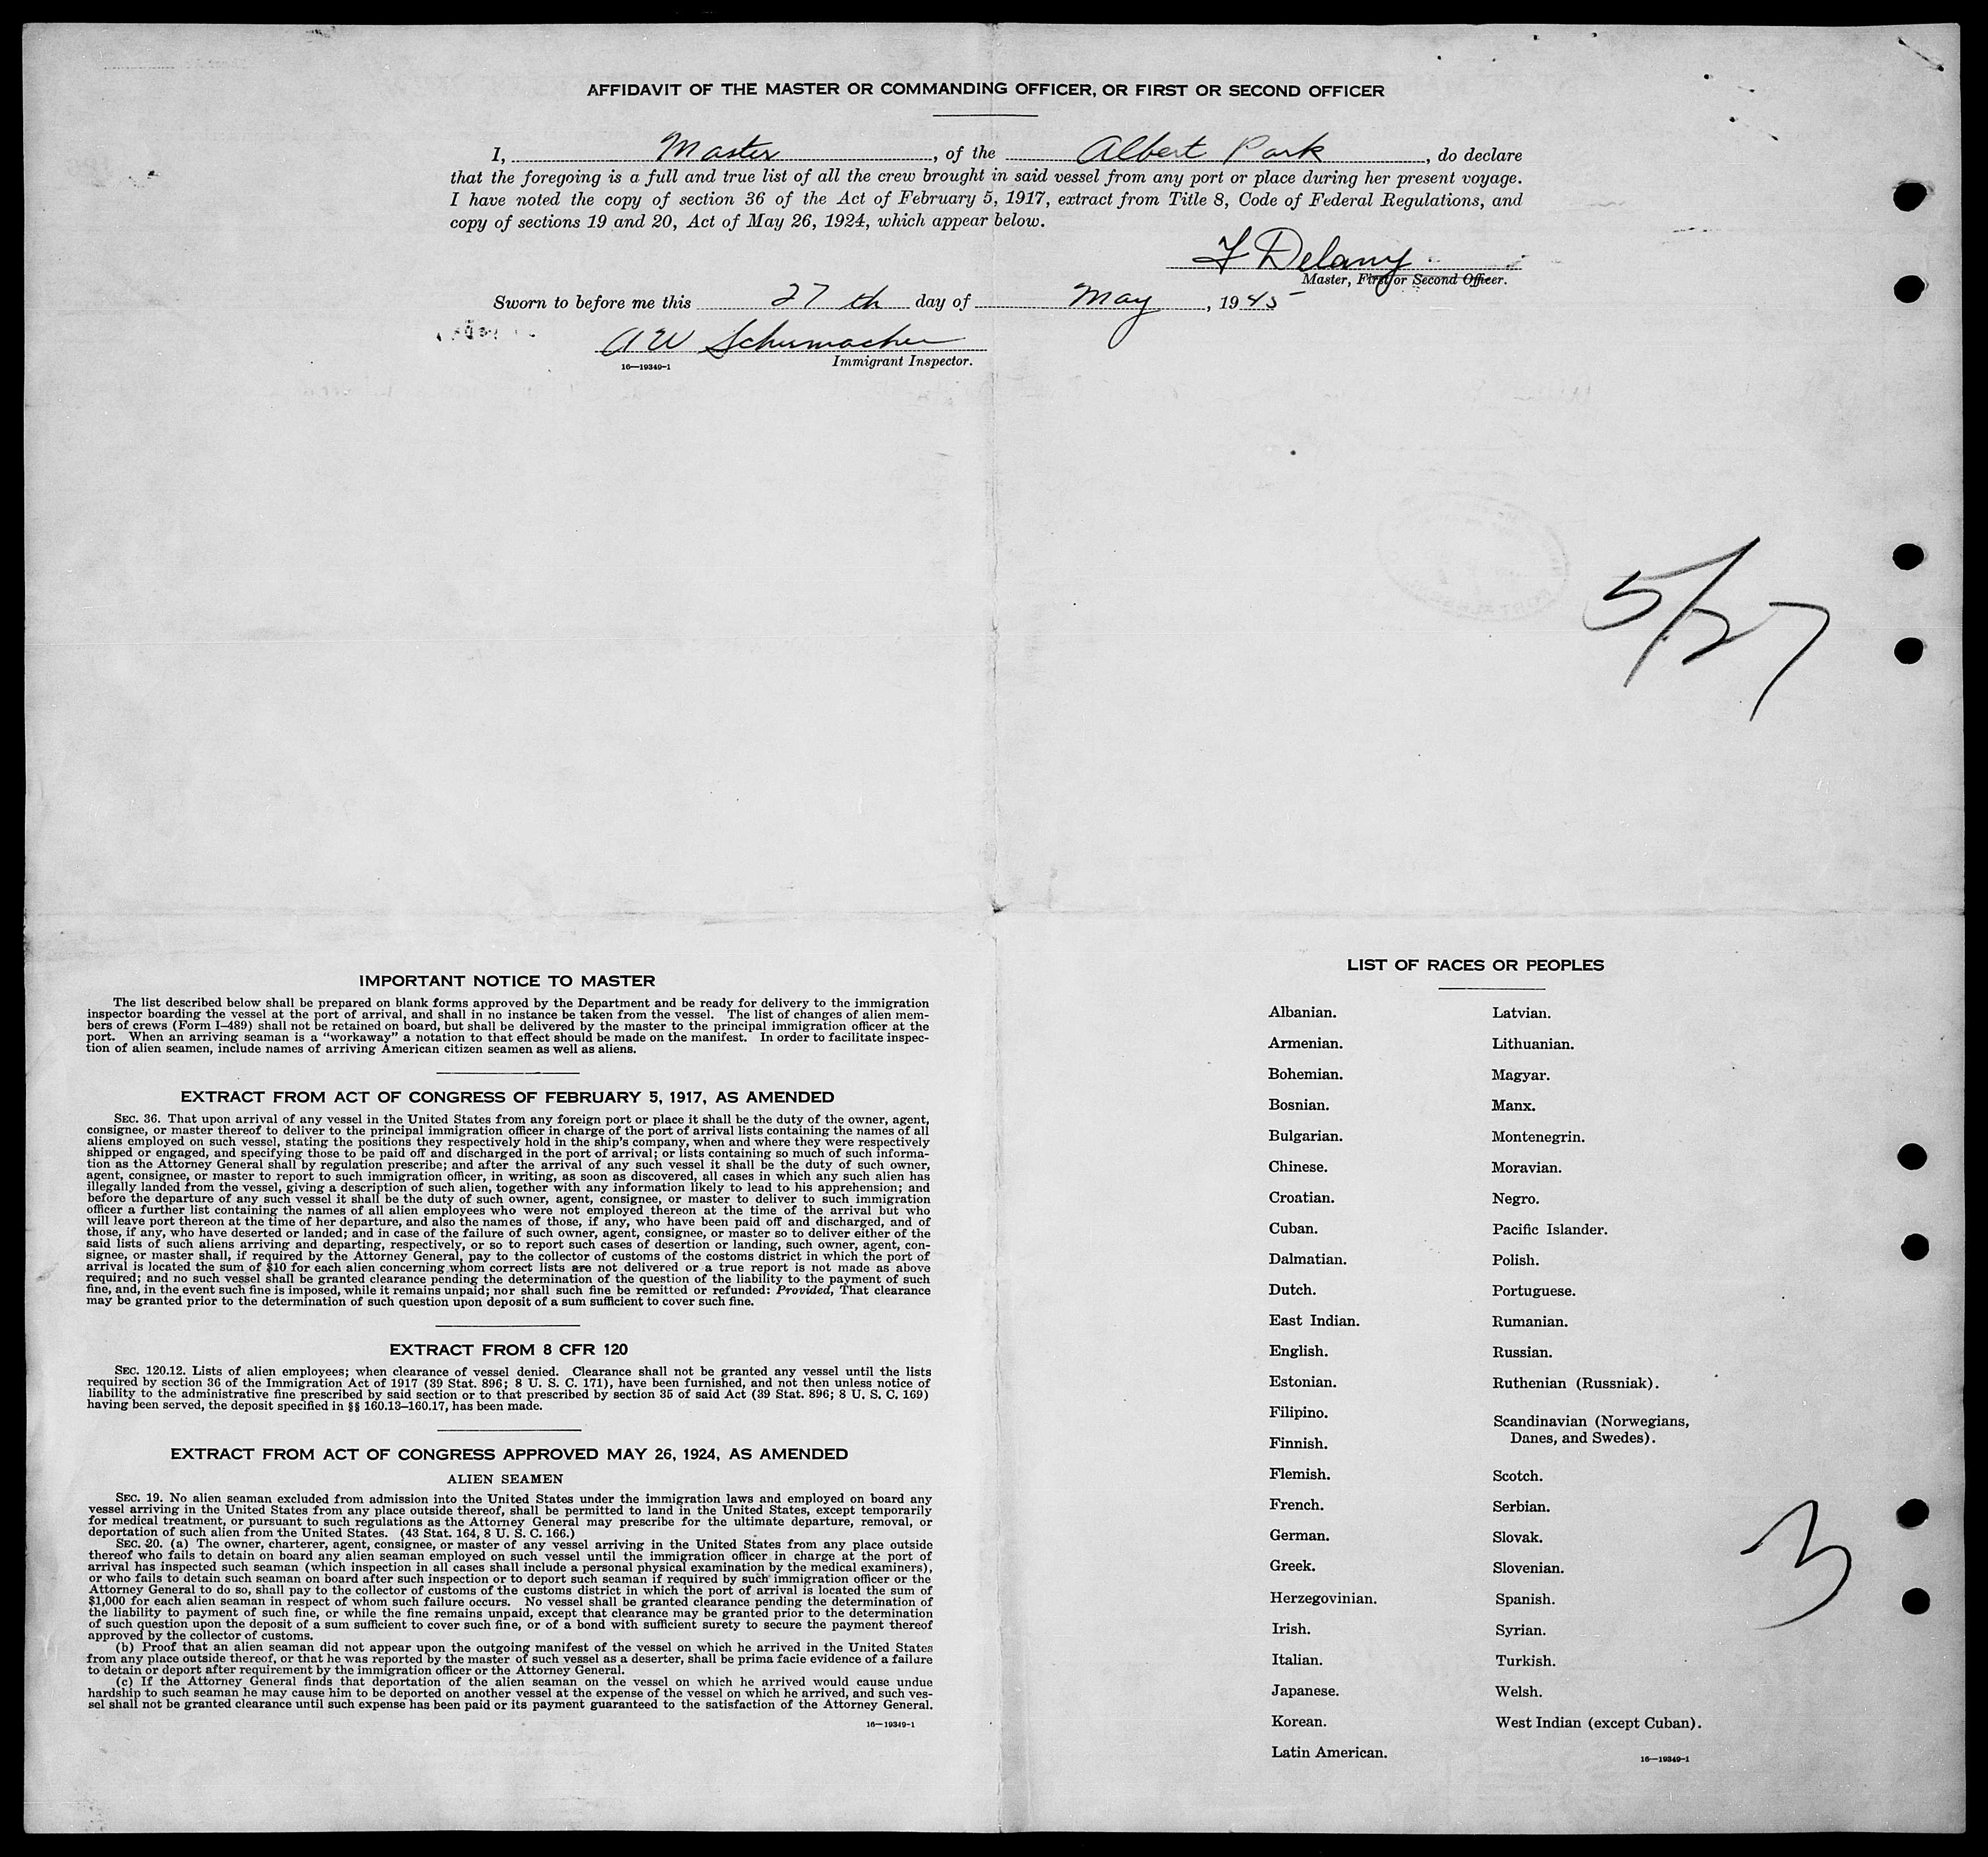 AFFIDAVIT OF THE MASTER OR COMMANDING OFFICER, OR FIRST OR SECOND OFFICER
I, Master, of the Albert Park, do declare
that the foregoing is a full and true list of all the crew brought in said vessel from any port or place during her present voyage.
I have noted the copy of section 36 of the Act of February 5, 1917, extract from Title 8, Code of Federal Regulations, and
copy of sections 19 and 20, Act of May 26, 1924, which appear below.
F Delany
Master, First or Second Officer.
Sworn to before me this 27 th day of May, 1945
A W Schumacher
16—19349-1 Immigrant Inspector.
5/27
IMPORTANT NOTICE TO MASTER
The list described below shall be prepared on blank forms approved by the Department and be ready for delivery to the immigration
inspector boarding the vessel at the port of arrival, and shall in no instance be taken from the vessel. The list of changes of alien mem-
bers of crews (Form I-489) shall not be retained on board, but shall be delivered by the master to the principal immigration officer at the
port. When an arriving seaman is a "workaway" a notation to that effect should be made on the manifest. In order to facilitate inspec-
tion of alien seamen, include names of arriving American citizen seamen as well as aliens.
EXTRACT FROM ACT OF CONGRESS OF FEBRUARY 5, 1917, AS AMENDED
SEC. 36. That upon arrival of any vessel in the United States from any foreign port or place it shall be the duty of the owner, agent,
consignee, or master thereof to deliver to the principal immigration officer in charge of the port of arrival lists containing the names of all
aliens employed on such vessel, stating the positions they respectively hold in the ship's company, when and where they were respectively
shipped or engaged, and specifying those to be paid off and discharged in the port of arrival; or lists containing so much of such informa-
tion as the Attorney General shall by regulation prescribe; and after the arrival of any such vessel it shall be the duty of such owner,
agent, consignee, or master to report to such immigration officer, in writing, as soon as discovered, all cases in which any such alien has
illegally landed from the vessel, giving a description of such alien, together with any information likely to lead to his apprehension; and
before the departure of any such vessel it shall be the duty of such owner, agent, consignee, or master to deliver to such immigration
officer a further list containing the names of all alien employees who were not employed thereon at the time of the arrival but who
will leave port thereon at the time of her departure, and also the names of those, if any, who have been paid off and discharged, and of
those, if any, who have deserted or landed; and in case of the failure of such owner, agent, consignee, or master so to deliver either of the
said lists of such aliens arriving and departing, respectively, or so to report such cases of desertion or landing, such owner, agent, con-
signee, or master shall, if required by the Attorney General, pay to the collector of customs of the costoms district in which the port of
arrival is located the sum of $10 for each alien concerning whom correct lists are not delivered or a true report is not made as above
required; and no such vessel shall be granted clearance pending the determination of the question of the liability to the payment of such
fine, and, in the event such fine is imposed, while it remains unpaid; nor shall such fine be remitted or refunded: Provided, That clearance
may be granted prior to the determination of such question upon deposit of a sum sufficient to cover such fine.
EXTRACT FROM 8 CFR 120
SEC. 120.12. Lists of alien employees; when clearance of vessel denied. Clearance shall not be granted any vessel until the lists
required by section 36 of the Immigration Act of 1917 (39 Stat. 896; 8 U. S. C. 171), have been furnished, and not then unless notice of
liability to the administrative fine prescribed by said section or to that prescribed by section 35 of said Act (39 Stat. 896; 8 U. S. C. 169)
having been served, the deposit specified in §§ 160.13–160.17, has been made.
EXTRACT FROM ACT OF CONGRESS APPROVED MAY 26, 1924, AS AMENDED
ALIEN SEAMEN
SEC. 19. No alien seaman excluded from admission into the United States under the immigration laws and employed on board any
vessel arriving in the United States from any place outside thereof, shall be permitted to land in the United States, except temporarily
for medical treatment, or pursuant to such regulations as the Attorney General may prescribe for the ultimate departure, removal, or
deportation of such alien from the United States. (43 Stat. 164, 8 U. S. C. 166.)
SEC. 20. (a) The owner, charterer, agent, consignee, or master of any vessel arriving in the United States from any place outside
thereof who fails to detain on board any alien seaman employed on such vessel until the immigration officer in charge at the port of
arrival has inspected such seaman (which inspection in all cases shall include a personal physical examination by the medical examiners),
or who fails to detain such seaman on board after such inspection or to deport such seaman if required by such immigration officer or the
Attorney General to do so, shall pay to the collector of customs of the customs district in which the port of arrival is located the sum of
$1,000 for each alien seaman in respect of whom such failure occurs. No vessel shall be granted clearance pending the determination of
the liability to payment of such fine, or while the fine remains unpaid, except that clearance may be granted prior to the determination
of such question upon the deposit of a sum sufficient to cover such fine, or of a bond with sufficient surety to secure the payment thereof
approved by the collector of customs.
(b) Proof that an alien seaman did not appear upon the outgoing manifest of the vessel on which he arrived in the United States
from any place outside thereof, or that he was reported by the master of such vessel as a deserter, shall be prima facie evidence of a failure
to detain or deport after requirement by the immigration officer or the Attorney General.
(c) If the Attorney General finds that deportation of the alien seaman on the vessel on which he arrived would cause undue
hardship to such seaman he may cause him to be deported on another vessel at the expense of the vessel on which he arrived, and such ves-
sel shall not be granted clearance until such expense has been paid or its payment guaranteed to the satisfaction of the Attorney General.
16—19349-1
LIST OF RACES OR PEOPLES
Albanian.
Armenian.
Bohemian.
Bosnian.
Bulgarian.
Chinese.
Croatian.
Cuban.
Dalmatian.
Dutch.
East Indian.
English.
Estonian.
Filipino.
Finnish.
Flemish.
French.
German.
Greek.
Herzegovinian.
Irish.
Italian.
Japanese.
Korean.
Latin American.
Latvian.
Lithuanian.
Magyar.
Manx.
Montenegrin.
Moravian.
Negro.
Pacific Islander.
Polish.
Portuguese.
Rumanian.
Russian.
Ruthenian (Russniak).
Scandinavian (Norwegians,
Danes, and Swedes).
Scotch.
Serbian.
Slovak.
Slovenian.
Spanish.
Syrian.
Turkish.
Welsh.
West Indian (except Cuban).
16—19349-1
3